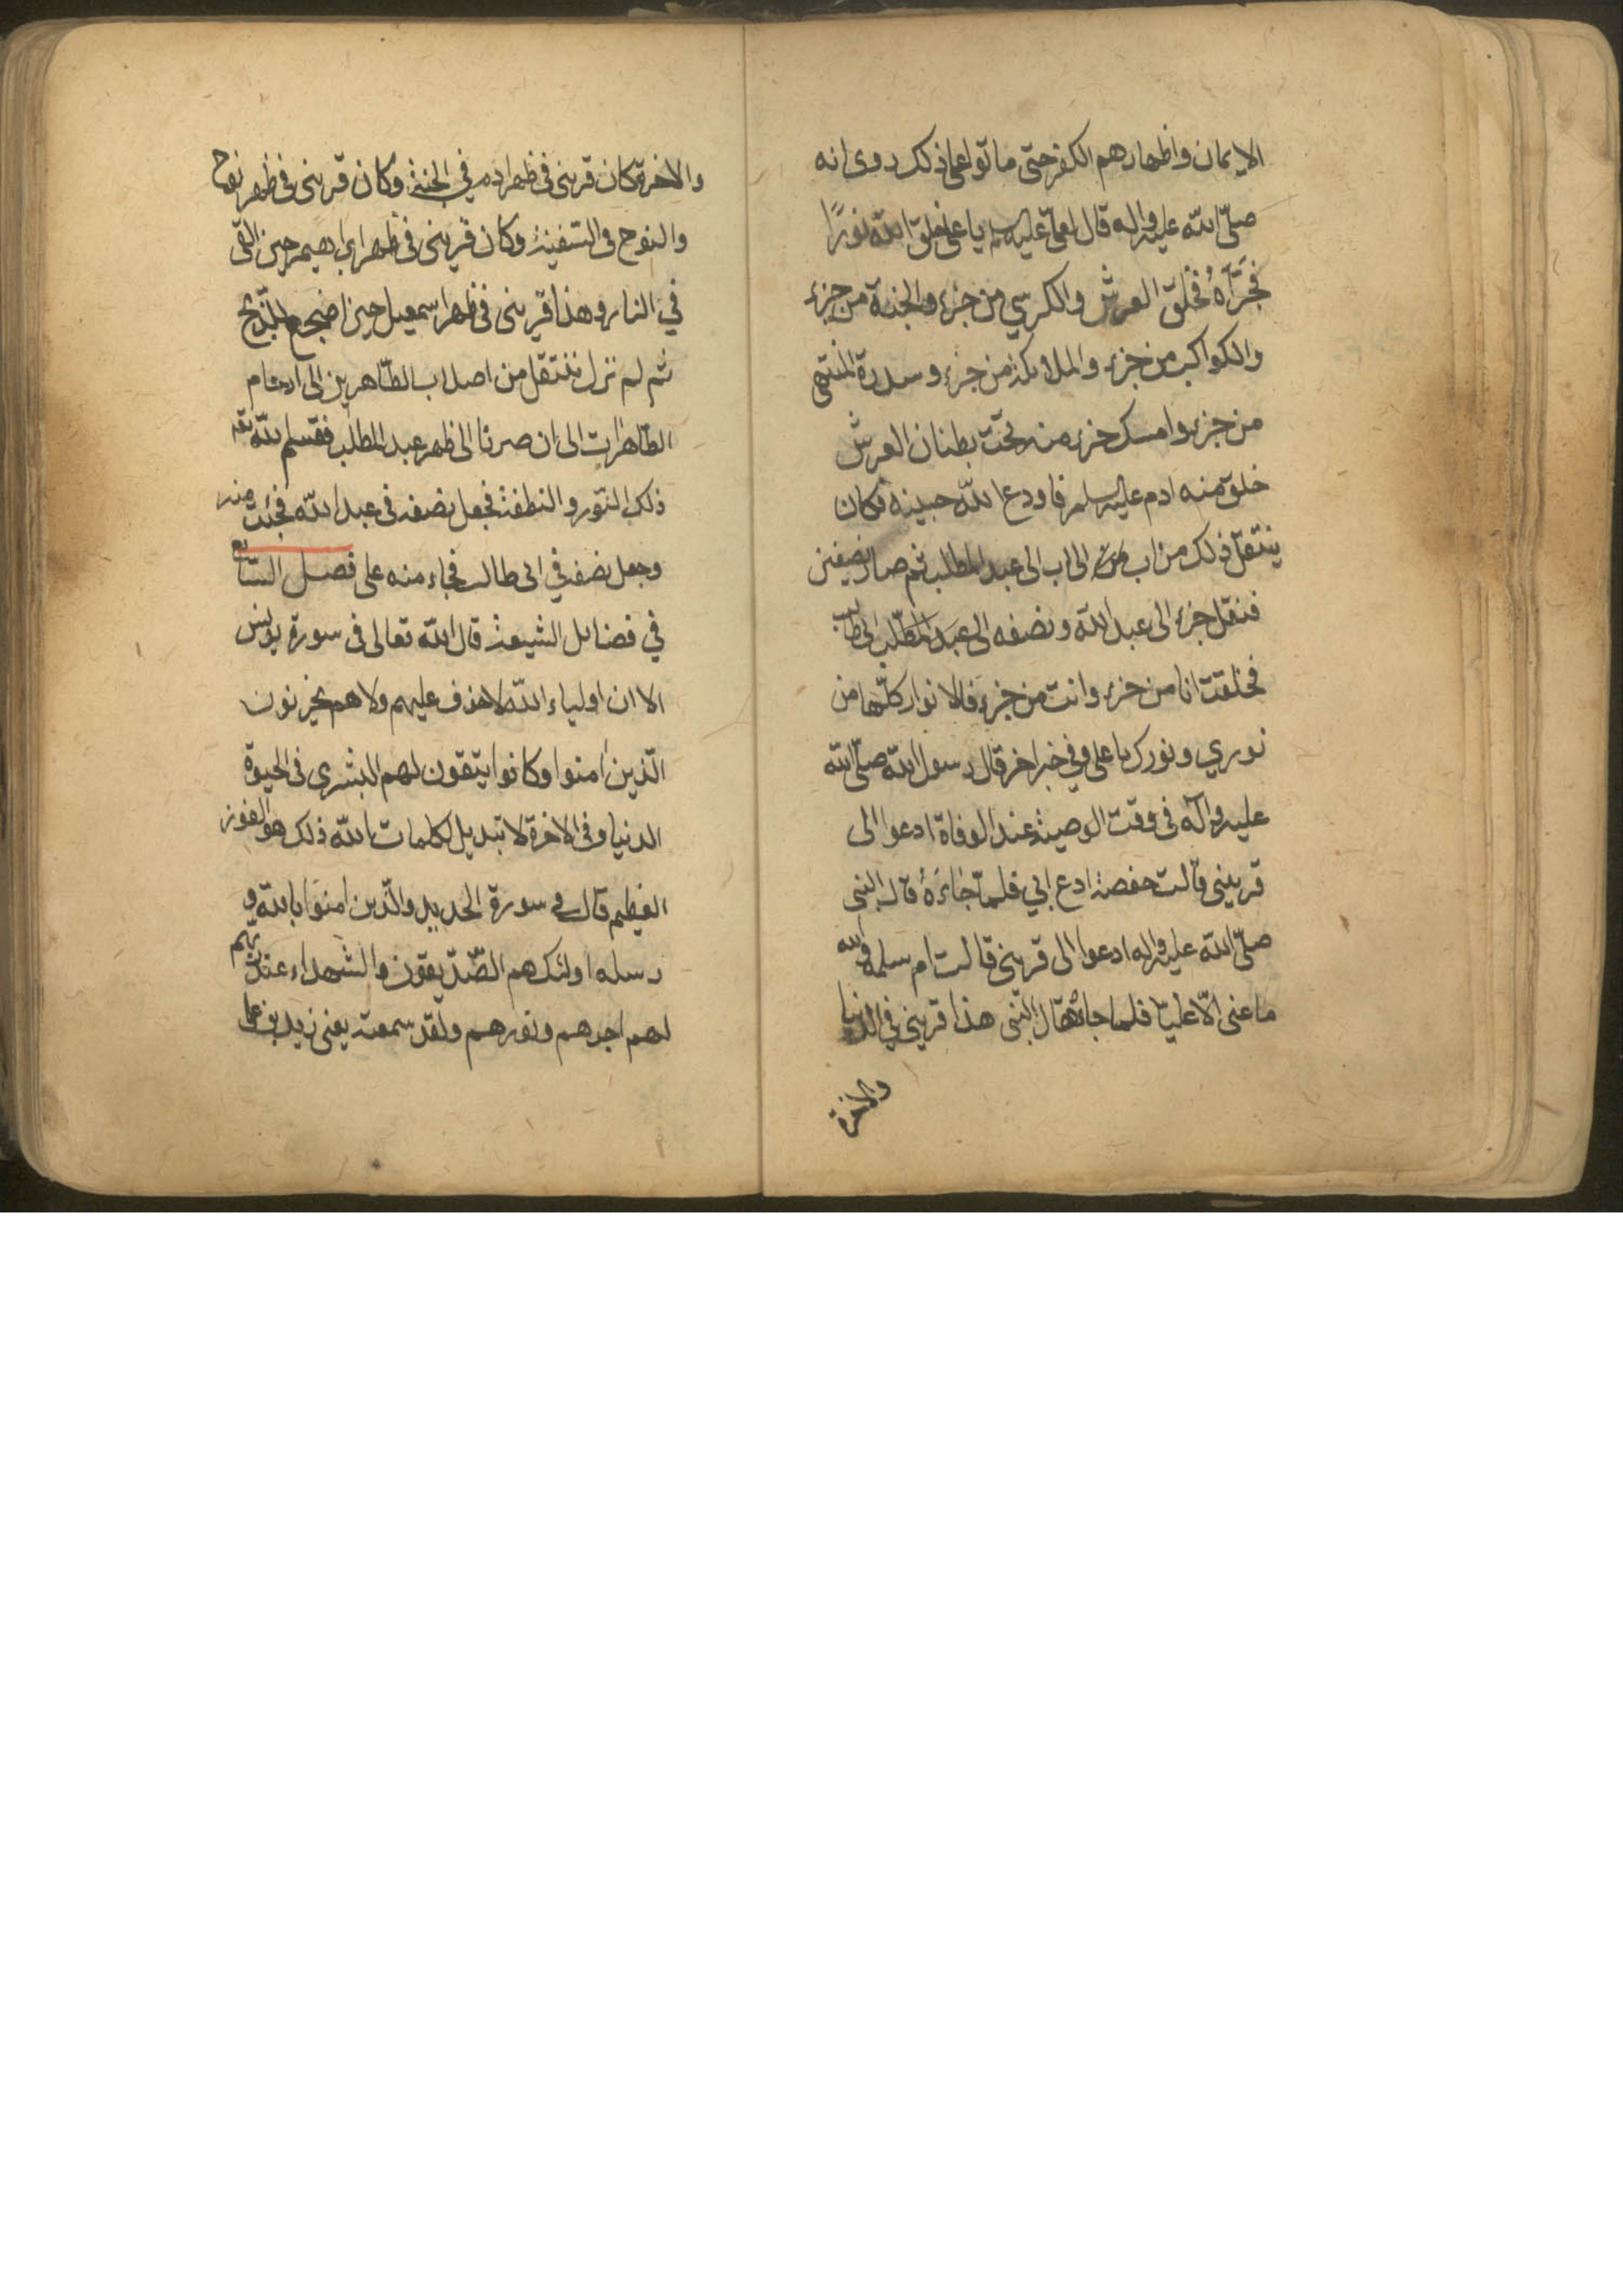 الايمان واظهارهم الكفر حتى ماتوا على ذلك روى انه
صلّى الله عليه واله قال لعلىّ عليه السلم يا على خلق الله نورًا
فجَزّاَهُ فخلق العرش والكرسي من جزء والجنة من جزء
والكواكب من جزء والملائكة من جزء وسدرة المنتهى
من جزء وامسك جزء منه تحت بطنان العرش
خلق منه ادم عليه السلم فاودع الله جبينه فكان
ينتقل ذلك من اب الى اب الى عبد المطلب ثم صار نصفين
فنقل جزء الى عبد الله ونصفه الى عبد المطّلب ابى طالب
فخلقت انا من جزء وانت من جزء فالانوار كلّها من
نوري ونورك يا على وفي خبر اخر قال رسول الله صلّى الله
عليه وآله فى وقت الوصية عند الوفاة ادعوا الى
قرينى قالت حفصة ادع ابي فلمّا جَاءَهُ قال النبى
صلّى الله عليه واله ادعوا الى قرينى قالت ام سلمة والله
ما عنى الّا عليّا فلما جائه قال النّبى هذا قرينى في الدنيا
والاخرة
والاخرة كان قرينى فى ظهر ادم في الجنة وكان قرينى فى ظهر نوح
والنوح فى السّفينة وكان قرينى فى ظهر ابراهيم حين القى
في النار وهذا قرينى فى ظهر اسمعيل حين اضجع للذّبح
ثم لم نزل ننتقل من اصلاب الطّاهرين الى ارحام
الطّاهرات الى ان صرنا الى ظهر عبد المطلب فقسم الله تعه
ذلك النّور والنطفة فجعل نصفه فى عبد الله فجئت منه
وجعل نصفه في ابى طالب فجاء منه على فصل السّابع
في فضائل الشيعة قال الله تعالى فى سورة يونس
الا ان اولياء الله لا خوف عليهم ولا هم يحزنون
الّذين امنوا وكانوا يتقون لهم البشرى فى الحيوة
الدنيا وفى الاخرة لا تبديل لكلمات الله ذلك هو الفوز
العظيم قال فى سورة الحديد والّذين امنوا بالله و
رسله اولئك هم الصّدّيقون والشهداء عند ربهم
لهم اجرهم ونورهم ولقد سمعت يعنى زيد بن على